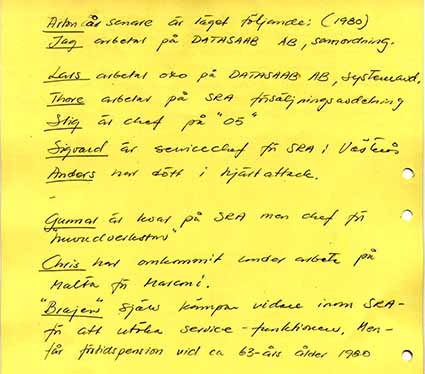 Arton år senare är läget följande: (1980)
Jag arbetar på DATASAAB AB, samordning.
Lars arbetar oxo på DATASAAB AB, systemavd.
Thore arbetar på SRA försäljningsavdelning
Stig är chef på "05"
Sigvard är servicechef för SRA i Västerås
Anders har dött i hjärtattack.
Gunnar är kvar på SRA men chef för
"huvudverkstan"
Chris har omkommit under arbete på
Malta för Marconi.
"Brajen" själv kämpar vidare inom SRA-
för att utöka service-funktionen. Men-
får förtidspension vid ca 63-års ålder 1980